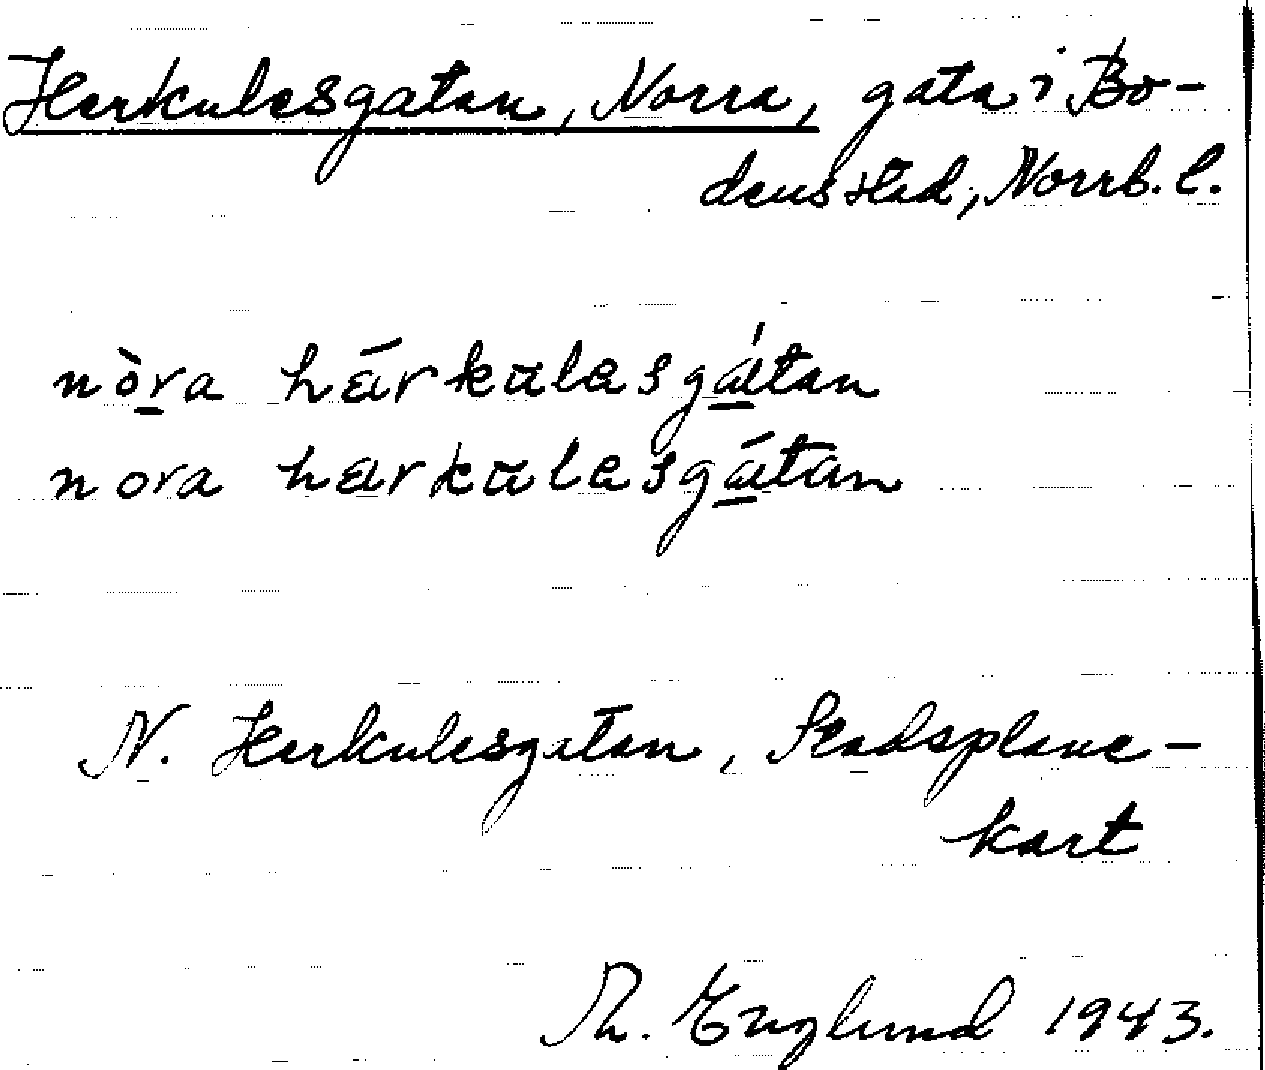 Herkulesgatan, Norra, gata i Bo-
dens stad, Norrb. l.
nòra hárkulesgátan
nora harkulesgátan
N. Herkulesgatan, Stadsplane-
kart
Th. Englund 1943.